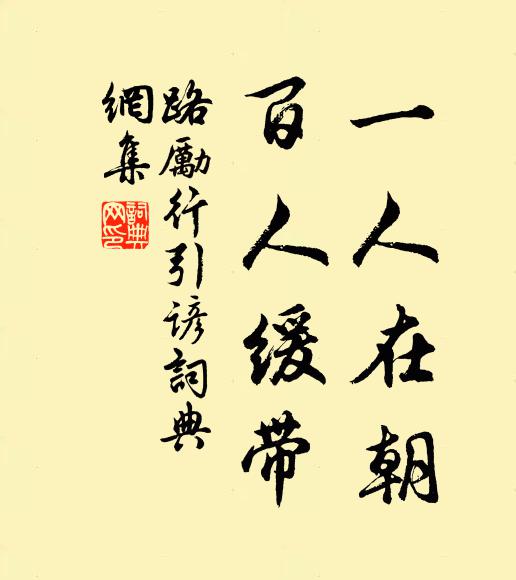 一人在朝
百人缓带
路励行引谚詞典
網集
詞典
网印